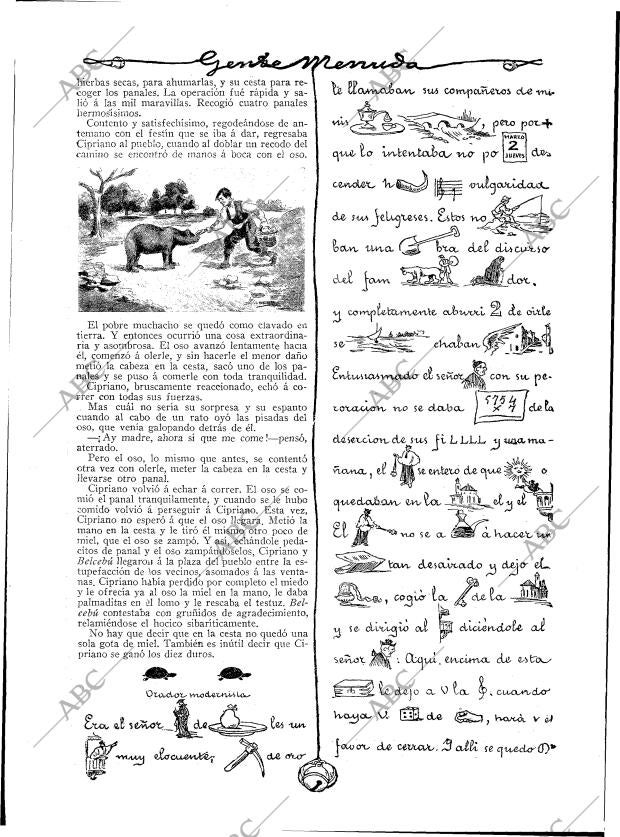 Gente Menuda
hierbas secas, para ahumarlas, y su cesta para re-
coger los panales. La operación fué rápida y sa-
lió á las mil maravillas. Recogió cuatro panales
hermosísimos.
Contento y satisfechísimo, regodeándose de an-
temano con el festín que se iba á dar, regresaba
Cipriano al pueblo, cuando al doblar un recodo del
camino se encontró de manos á boca con el oso.
El pobre muchacho se quedó como clavado en
tierra. Y entonces ocurrió una cosa extraordina-
ria y asombrosa. El oso avanzó lentamente hacia
él, comenzó á olerle, y sin hacerle el menor daño
metió la cabeza en la cesta, sacó uno de los pa-
nales y se puso á comerle con toda tranquilidad.
Cipriano, bruscamente reaccionado, echó á co-
rrer con todas sus fuerzas.
Mas cuál no sería su sorpresa y su espanto
cuando al cabo de un rato oyó las pisadas del
oso, que venía galopando detrás de él.
—¡Ay madre, ahora sí que me come!—pensó,
aterrado.
Pero el oso, lo mismo que antes, se contentó
otra vez con olerle, meter la cabeza en la cesta y
llevarse otro panal.
Cipriano volvió á echar á correr. El oso se co-
mió el panal tranquilamente, y cuando se lé hubo
comido volvió á perseguir á Cipriano. Esta vez,
Cipriano no esperó á que el oso llegara. Metió la
mano en la cesta y le tiró él mismo otro poco de
miel, que el oso se zampó. Y así, echándole peda-
citos de panal y el oso zampándoselos, Cipriano y
Belcebú llegaron á la plaza del pueblo entre la es-
tupefacción de los vecinos, asomados á las venta-
nas. Cipriano había perdido por completo el miedo
y le ofrecía ya al oso la miel en la mano, le daba
palmaditas en el lomo y le rescaba el testuz. Bel-
cebú contestaba con gruñidos de agradecimiento,
relamiéndose el hocico sibaríticamente.
No hay que decir que en la cesta no quedó una
sola gota de miel. También es inútil decir que Ci-
priano se ganó los diez duros.
Orador modernista
Era el señor de les un
muy elocuente, de oro
le llamaban sus compañeros de mi-
nis , pero por +
MARZO
2
JUEVES
que lo intentaba no po des
cender h vulgaridad
de sus feligreses. Estos no
ban una bra del discurso
del fam dor,
y completamente aburri 2 de oirle
se chaban
Entusiasmado el señor con su pe-
roracion no se daba 5754 x 7 de la
desercion de sus fi LLLL y una ma-
ñana, el se entero de que o
quedaban en la el y el
El no se a á hacer un
tan desairado y dejo el
, cogió la de la
y se dirigió al diciéndole al
señor : Aqui, encima de esta
le dejo a V la , cuando
haya V. de , hará v el
favor de cerrar. Y alli se quedo